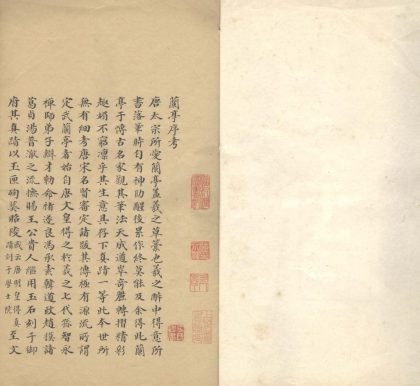 蘭亭序考
唐太宗所愛蘭亭蓋羲之草藁也羲之醉中得意所
書落筆時自有神助醒後累作終莫能及余得此蘭
亭于傳古名家觀其筆法天成遒卑奇麗轉摺精彩
趣媚不窮凜乎其生意具存下真蹟一等此本世所
無有細考唐宋名賢審定諸版其傳極有源流所謂
定武蘭亭者始自唐文皇得之於羲之七代孫智永
禪師弟子辯才勅命褚遂良馮承素韓道政趙模諸
葛貞湯普澈之流搨賜王公貴人繼用玉石刻于御
府其真蹟以玉匣殉葬昭陵或云唐明皇得真蹟刻于學士院至文